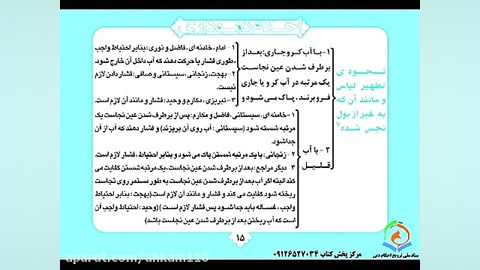 نحوه ی
تطهیر لباس
و مانند آن که
به غیر از بول
نجس شده
۱- با آب کر و جاری: بعد از
برطرف شدن عین نجاست
یک مرتبه در آب کر و یا جاری
فرو برند، پاک می شود و
۱- امام، خامنه ای، فاضل و نوری: بنابر احتیاط واجب
طوری فشار یا حرکت دهند که آب داخل آن خارج شود.
۲- بهجت، زنجانی، سیستانی و صافی: فشار دادن لازم
نیست.
۳- تبریزی، مکارم و وحید: فشار و مانند آن لازم است.
۲- با آب
قلیل
۱- خامنه ای، سیستانی، فاضل و مکارم: پس از برطرف شدن عین نجاست یک
مرتبه شسته شود (سیستانی: آب روی آن بریزند) و فشار دهند که آب از آن
جدا شود.
۲- زنجانی: با یک مرتبه شستن پاک می شود و بنابر احتیاط، فشار لازم است.
۳- دیگر مراجع: بعد از برطرف شدن عین نجاست، یک مرتبه شستن کفایت می
کند البته اگر آب بعد از برطرف شدن عین نجاست به طور مستمر روی نجاست
ریخته شود کفایت می کند و فشار و مانند آن لازم است (بهجت: بنابر احتیاط
واجب، غساله باید جدا شود پس فشار لازم است) (وحید: احتیاط واجب آن
است که آب ریختن بعد از برطرف شدن عین نجاست باشد)
۱۵
مرکز پخش کتاب ۰۹۱۲۶۵۲۷۰۳۴
ستاد ملی ترویج احکام دین
aparat.com/ahkam110